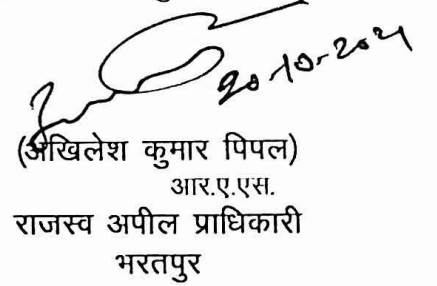 20-10-2021
(अखिलेश कुमार पिपल)
आर.ए.एस.
राजस्व अपील प्राधिकारी
भरतपुर